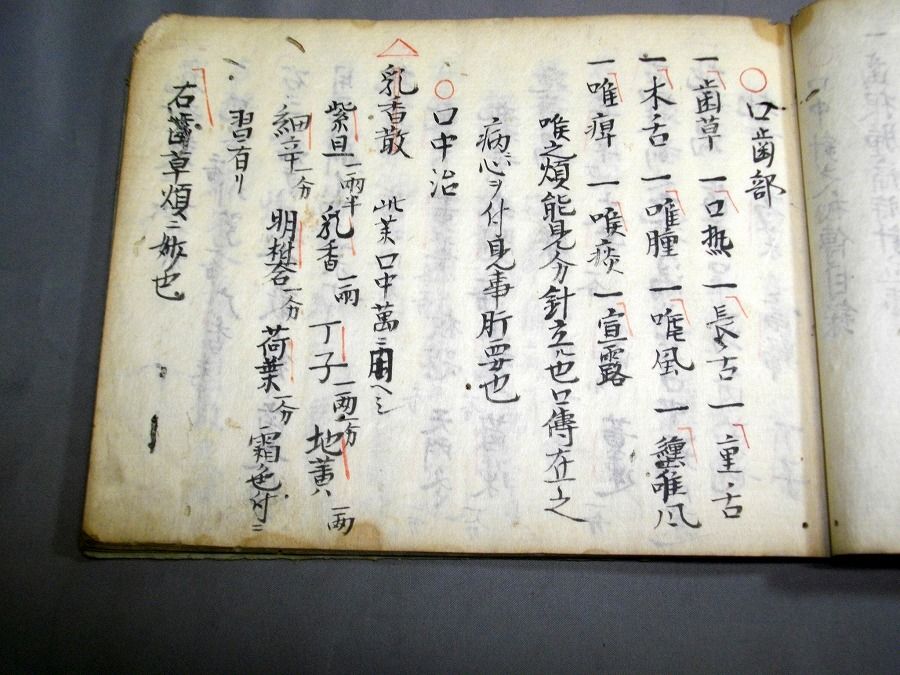 ○口歯部
一歯草 一口熱 一長舌 一重舌
一木舌 一喉腫 一喉風 一纏喉風
一喉痺 一喉痰 一宣露
喉之煩能見分針立ル也口傳在之
病心ヲ付見事肝要也
○口中治
△乳香散 此薬口中萬ニ用ヘシ
紫旦一兩半 乳香一兩 丁子一兩一分 地黄八一兩
細辛一分 明礬一分 荷葉一分 霜色付ニ
習有リ
右歯草煩ニ妙也